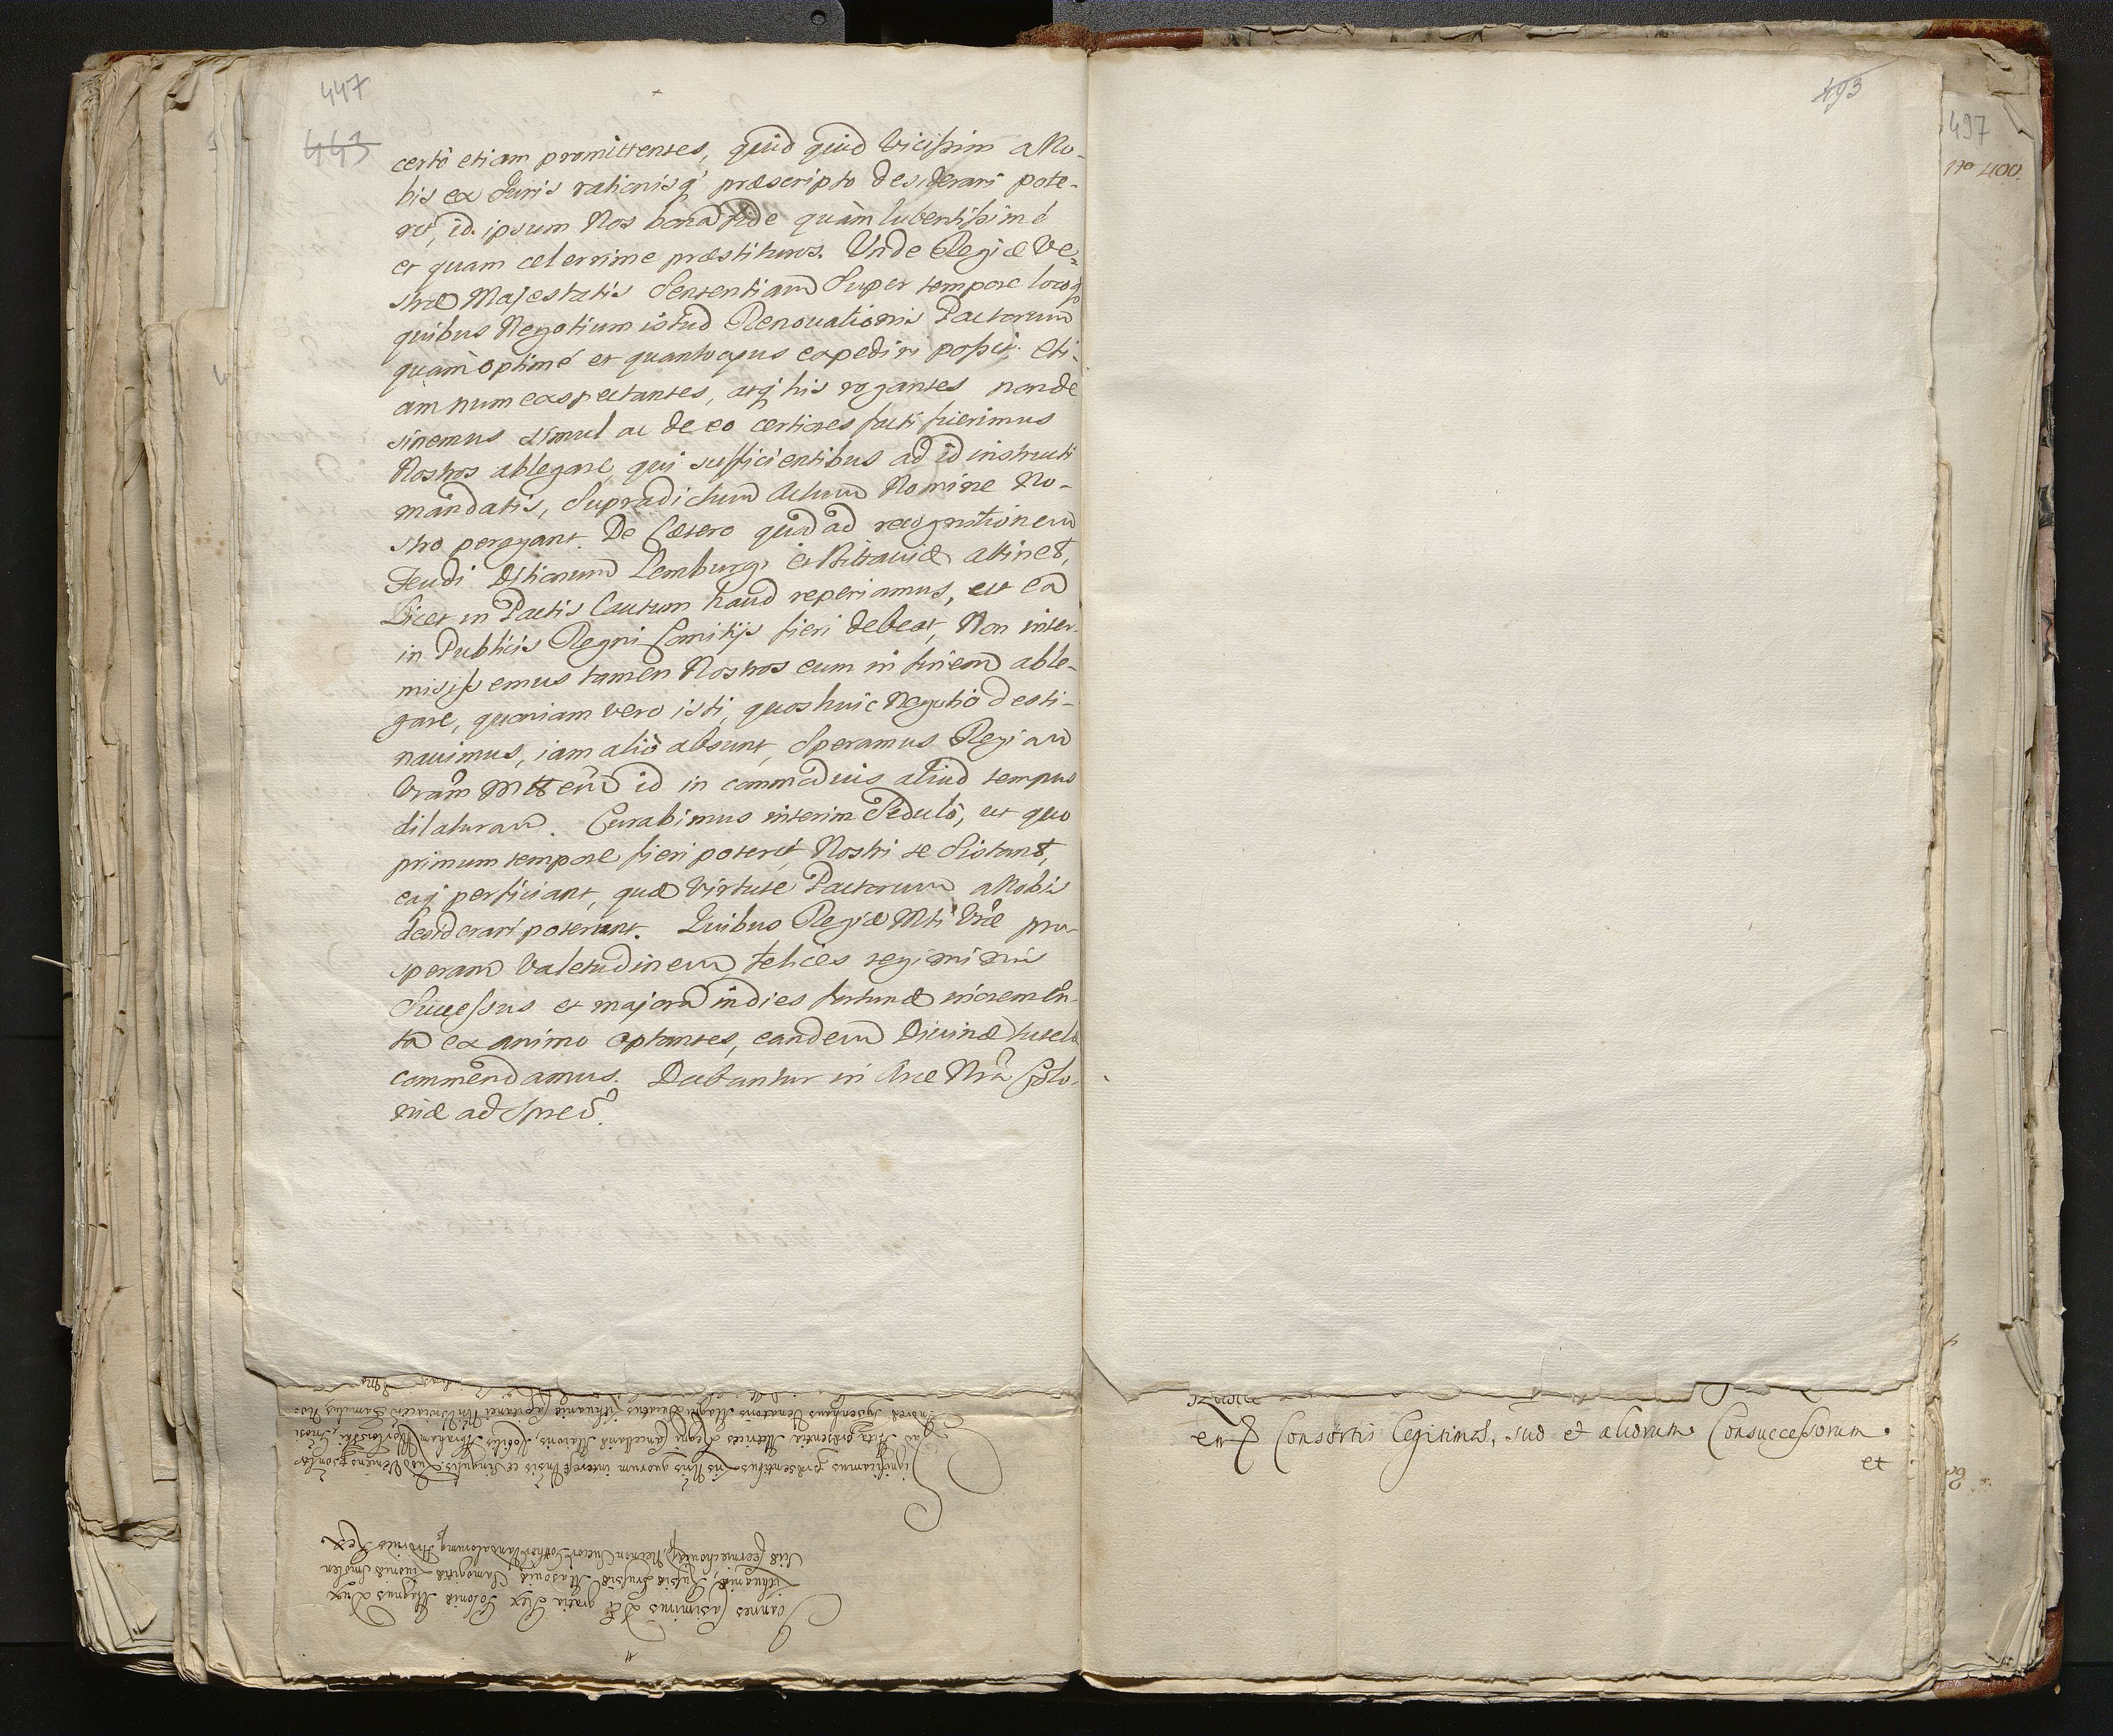 447
443
certò etiam promittentes, quid quid vicißim a No-
bis ex Juris rationisq́ præscripto desiderari pote-
rit, id ipsum Nos bona fide quàm lubentißimé
et quam celerrime præstituros. Unde Regiæ Ve-
stræ Majestatis Sententiam Super tempore locoq́
quibus Negotium istud Renouationis Pactorum
quàm optimé et quantocyus expediri poßit. eti-
am num exspectantes, atq́ his rogantes non de
sinemus simul ac de eo certiores facti fuerimus
Nostros ablegare qui sufficientibus ad id instructi
mandatis, Supradictum Actum Nomine No-
stro peragant. De Cætero quod ad recognitionem
Feudi Ditionum Lemburgi et Bittauiæ attinet,
Licet in Pactis Cautum haud reperiamus, ut ea
in Publicis Regni Comitijs fieri debeat, Non inter-
misißemus tamen Nostros eum in finem able-
gare, quoniam vero isti, quos huic Negotio desti-
nauimus, iam aliò absunt, Speramus Regiam
Vram Mttem id in commodius aliud tempus
dilaturam. Curabimus interim Sedulò, ut quo
primum tempore fieri poterit, Nostri se Sistant,
eaq́ perficiant, quæ virtute Pactorum a Nobis
desiderari poterunt. Quibus Regiæ Mti Vræ pro-
speram Valetudinem, felices regiminis
Succeßus et majora indies fortunæ incremen-
ta ex animo optantes, eandem Diuinæ tutelæ
commendamus. Dabantur in Arce Nra Colo-
niæ ad Spreo.
493
497
No 400.
Consortis Legitimæ, suo et aliorum Consucceßorum
et
Joannes Casimirus Dei gratia Rex Poloniæ Magnus Dux
Lithuaniæ, Russiæ Prussiæ Masoviæ Samogitiæ Livoniæ Smolen
sciæ Czerniechoviæq, Necnon Suecor Gothor Vandalorumq Hæredit Rex
Significamus præsentibus Lris Nris quorum interest Vnīsis et Singulis. Quod Veniens psonlr
ad Acta præsentia Metrices Regni Cancellariæ Maioris, Nobilis Abraham